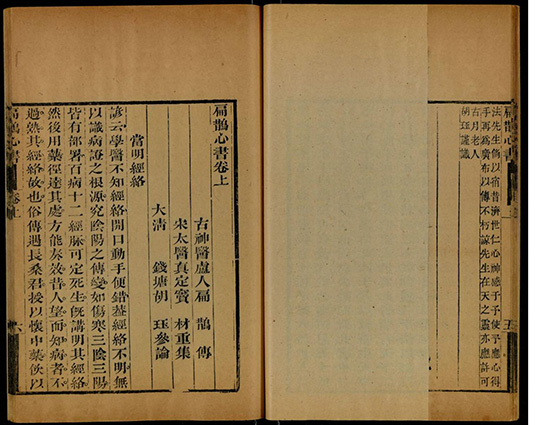 法先生倘以宿昔濟世仁心神感于予使予應心得
手再為廣布以傳不朽諒先生在天之靈亦應許可
古月老人
胡珏謹識
扁鵲心書
上
五
扁鵲心書卷上
古神醫盧人扁鵲傳
宋太醫真定竇材重集
大清錢塘胡珏參論
當明經絡
諺云學醫不知經絡開口動手便錯蓋經絡不明無
以識病證之根源究陰陽之傳變如傷寒三陰三陽
皆有部署百病十二經脈可定死生既講明其經絡
然後用藥徑達其處方能奏效昔人望而知病者不
過熟其經絡故也俗傳遇長桑君授以懷中藥飲以
扁鵲心書
卷上
六